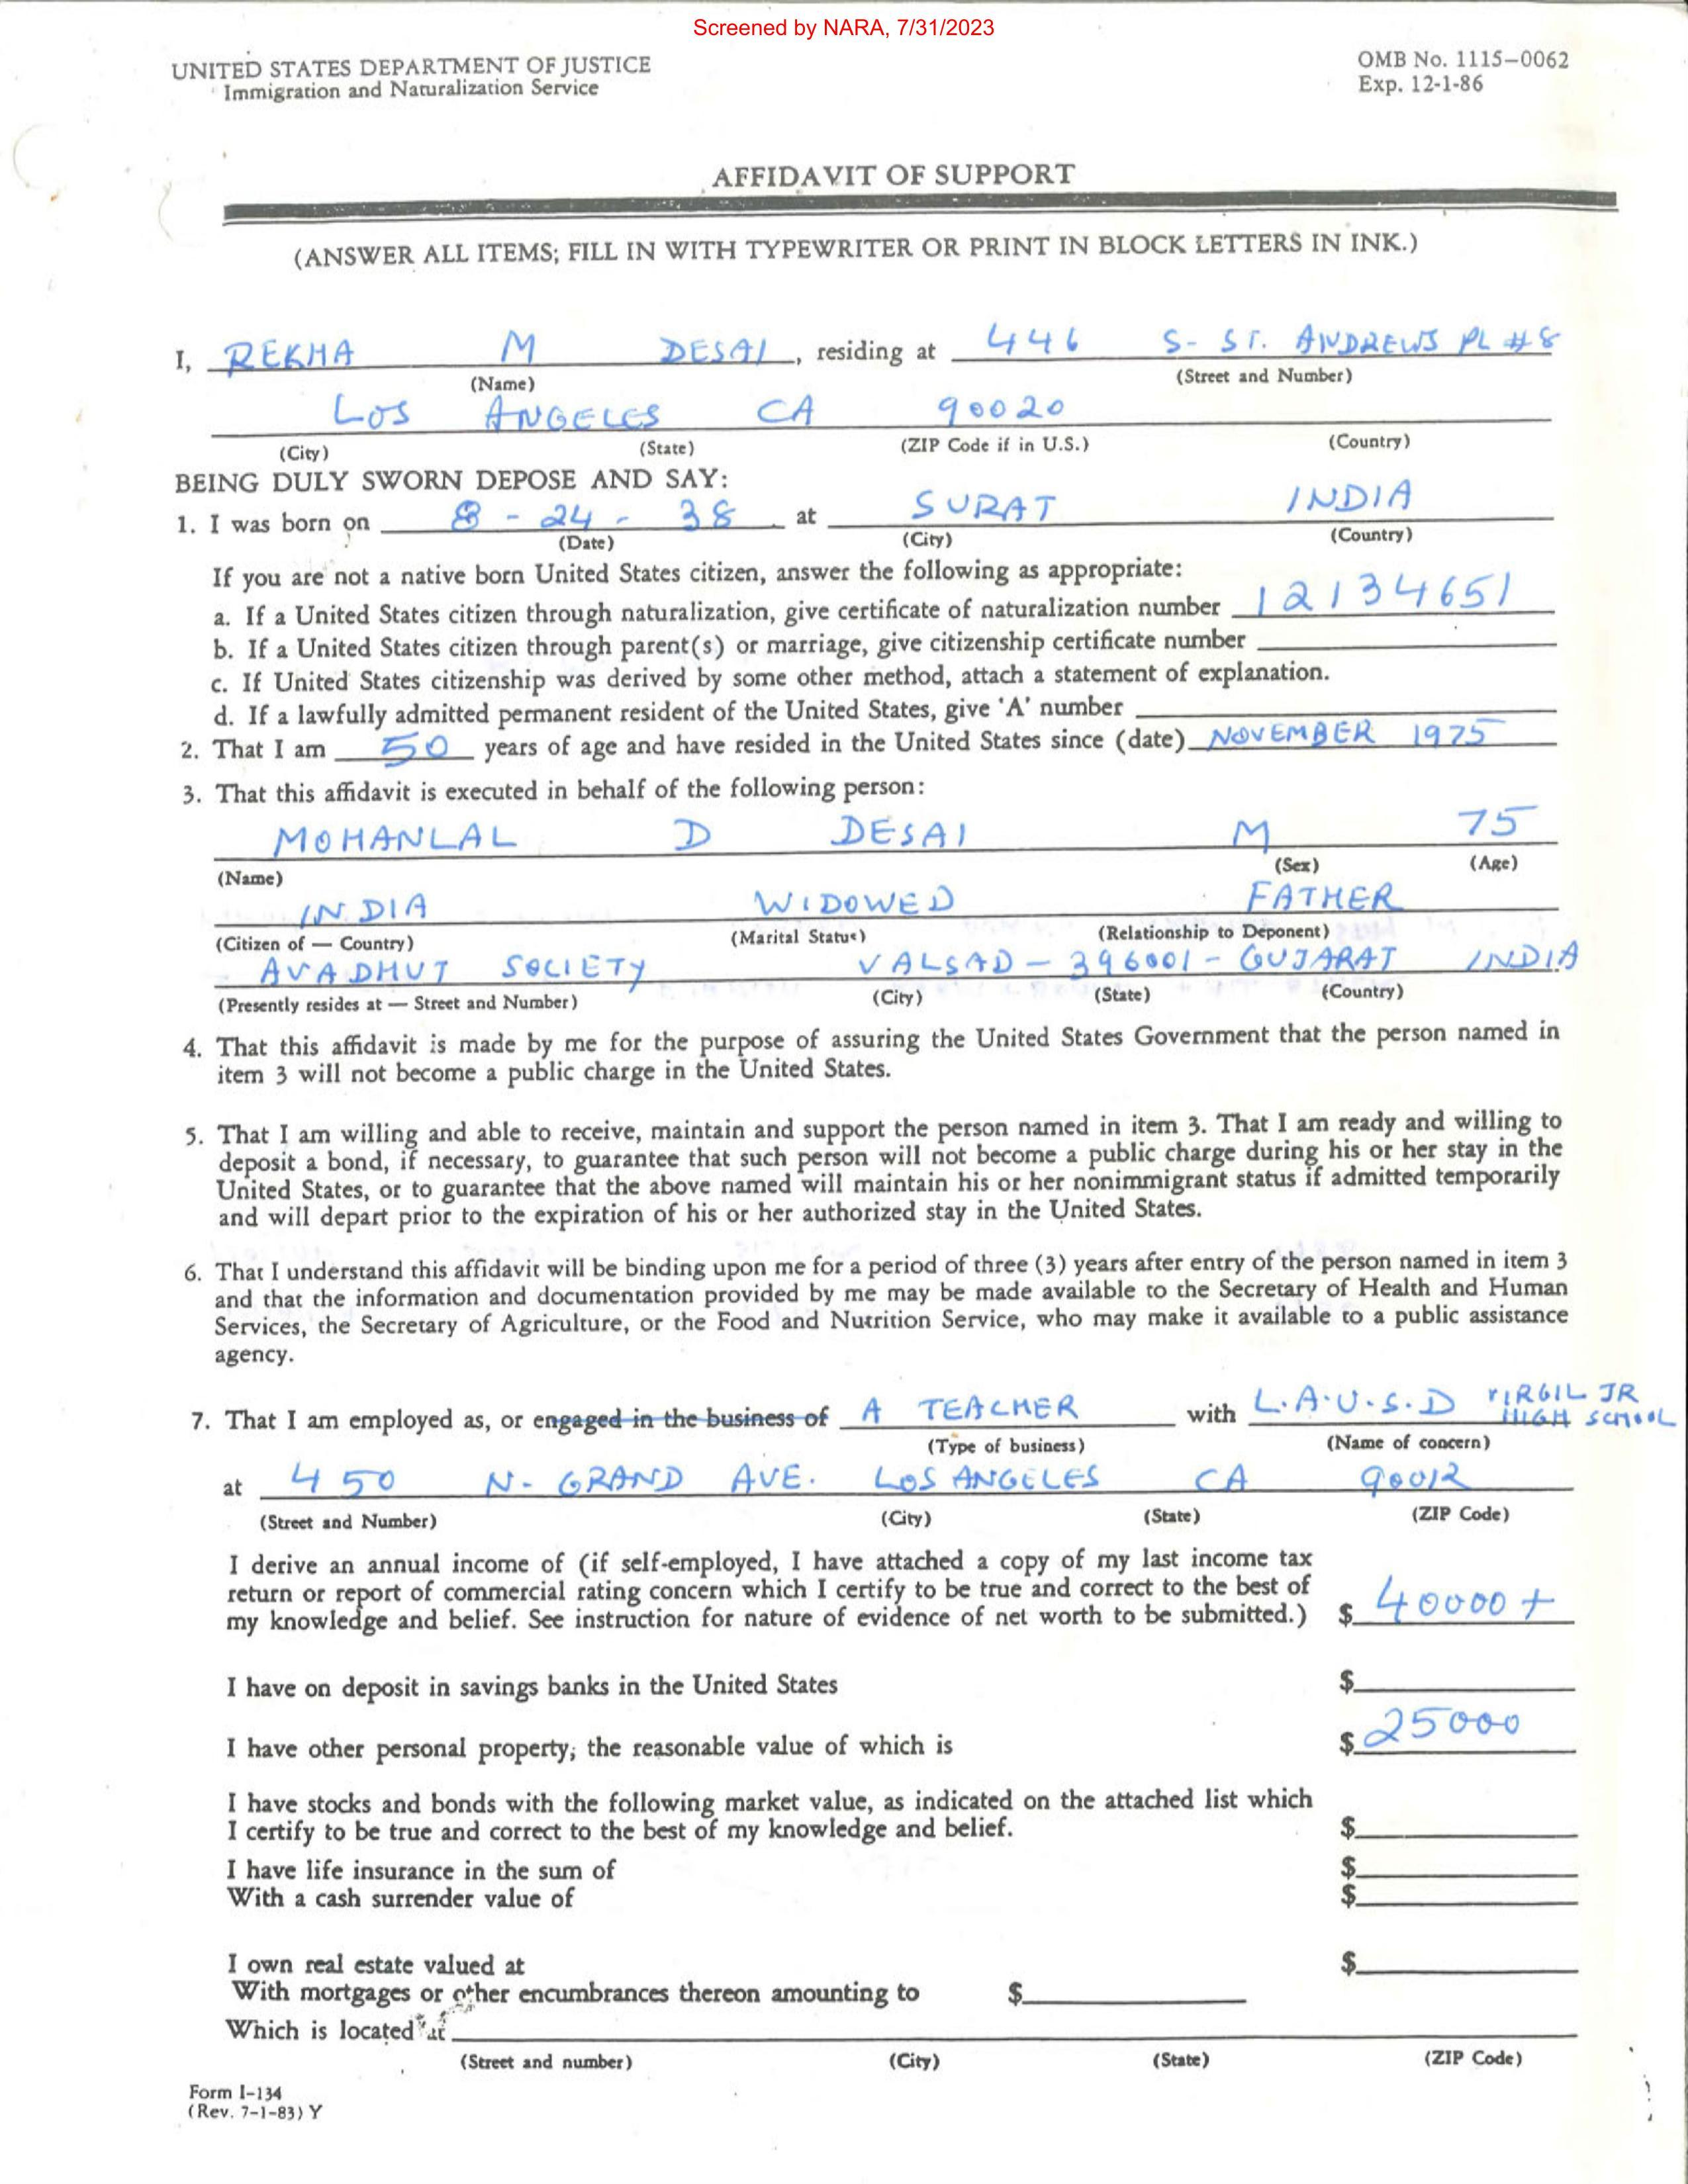 Screened by NARA, 7/31/2023
UNITED STATES DEPARTMENT OF JUSTICE
Immigration and Naturalization Service
OMB No. 1115-0062
Exp. 12-1-86
AFFIDAVIT OF SUPPORT
(ANSWER ALL ITEMS; FILL IN WITH TYPEWRITER OR PRINT IN BLOCK LETTERS IN INK.)
I, REKHA M DESAI, residing at 446 S- ST. ANDREWS PL #8
(Name) (Street and Number)
LOS ANGELES CA 90020
(City) (State) (ZIP Code if in U.S.) (Country)
BEING DULY SWORN DEPOSE AND SAY:
1. I was born on 8 - 24 - 38 at SURAT INDIA
(Date) (City) (Country)
If you are not a native born United States citizen, answer the following as appropriate:
a. If a United States citizen through naturalization, give certificate of naturalization number 12134651
b. If a United States citizen through parent(s) or marriage, give citizenship certificate number
c. If United States citizenship was derived by some other method, attach a statement of explanation.
d. If a lawfully admitted permanent resident of the United States, give 'A' number
2. That I am 50 years of age and have resided in the United States since (date) NOVEMBER 1975
3. That this affidavit is executed in behalf of the following person:
MOHANLAL D DESAI M 75
(Name) (Sex) (Age)
INDIA WIDOWED FATHER
(Citizen of — Country) (Marital Status) (Relationship to Deponent)
AVADHUT SOCIETY VALSAD - 396001 - GUJARAT INDIA
(Presently resides at — Street and Number) (City) (State) (Country)
4. That this affidavit is made by me for the purpose of assuring the United States Government that the person named in
item 3 will not become a public charge in the United States.
5. That I am willing and able to receive, maintain and support the person named in item 3. That I am ready and willing to
deposit a bond, if necessary, to guarantee that such person will not become a public charge during his or her stay in the
United States, or to guarantee that the above named will maintain his or her nonimmigrant status if admitted temporarily
and will depart prior to the expiration of his or her authorized stay in the United States.
6. That I understand this affidavit will be binding upon me for a period of three (3) years after entry of the person named in item 3
and that the information and documentation provided by me may be made available to the Secretary of Health and Human
Services, the Secretary of Agriculture, or the Food and Nutrition Service, who may make it available to a public assistance
agency.
7. That I am employed as, or engaged in the business of A TEACHER with L.A.U.S.D VIRGIL JR
HIGH SCHOOL
(Type of business) (Name of concern)
at 450 N- GRAND AVE. LOS ANGELES CA 90012
(Street and Number) (City) (State) (ZIP Code)
I derive an annual income of (if self-employed, I have attached a copy of my last income tax
return or report of commercial rating concern which I certify to be true and correct to the best of
my knowledge and belief. See instruction for nature of evidence of net worth to be submitted.) $ 40000 +
I have on deposit in savings banks in the United States $
I have other personal property; the reasonable value of which is $ 25000
I have stocks and bonds with the following market value, as indicated on the attached list which
I certify to be true and correct to the best of my knowledge and belief. $
I have life insurance in the sum of $
With a cash surrender value of $
I own real estate valued at $
With mortgages or other encumbrances thereon amounting to $
Which is located at
(Street and number) (City) (State) (ZIP Code)
Form I-134
(Rev. 7-1-83) Y